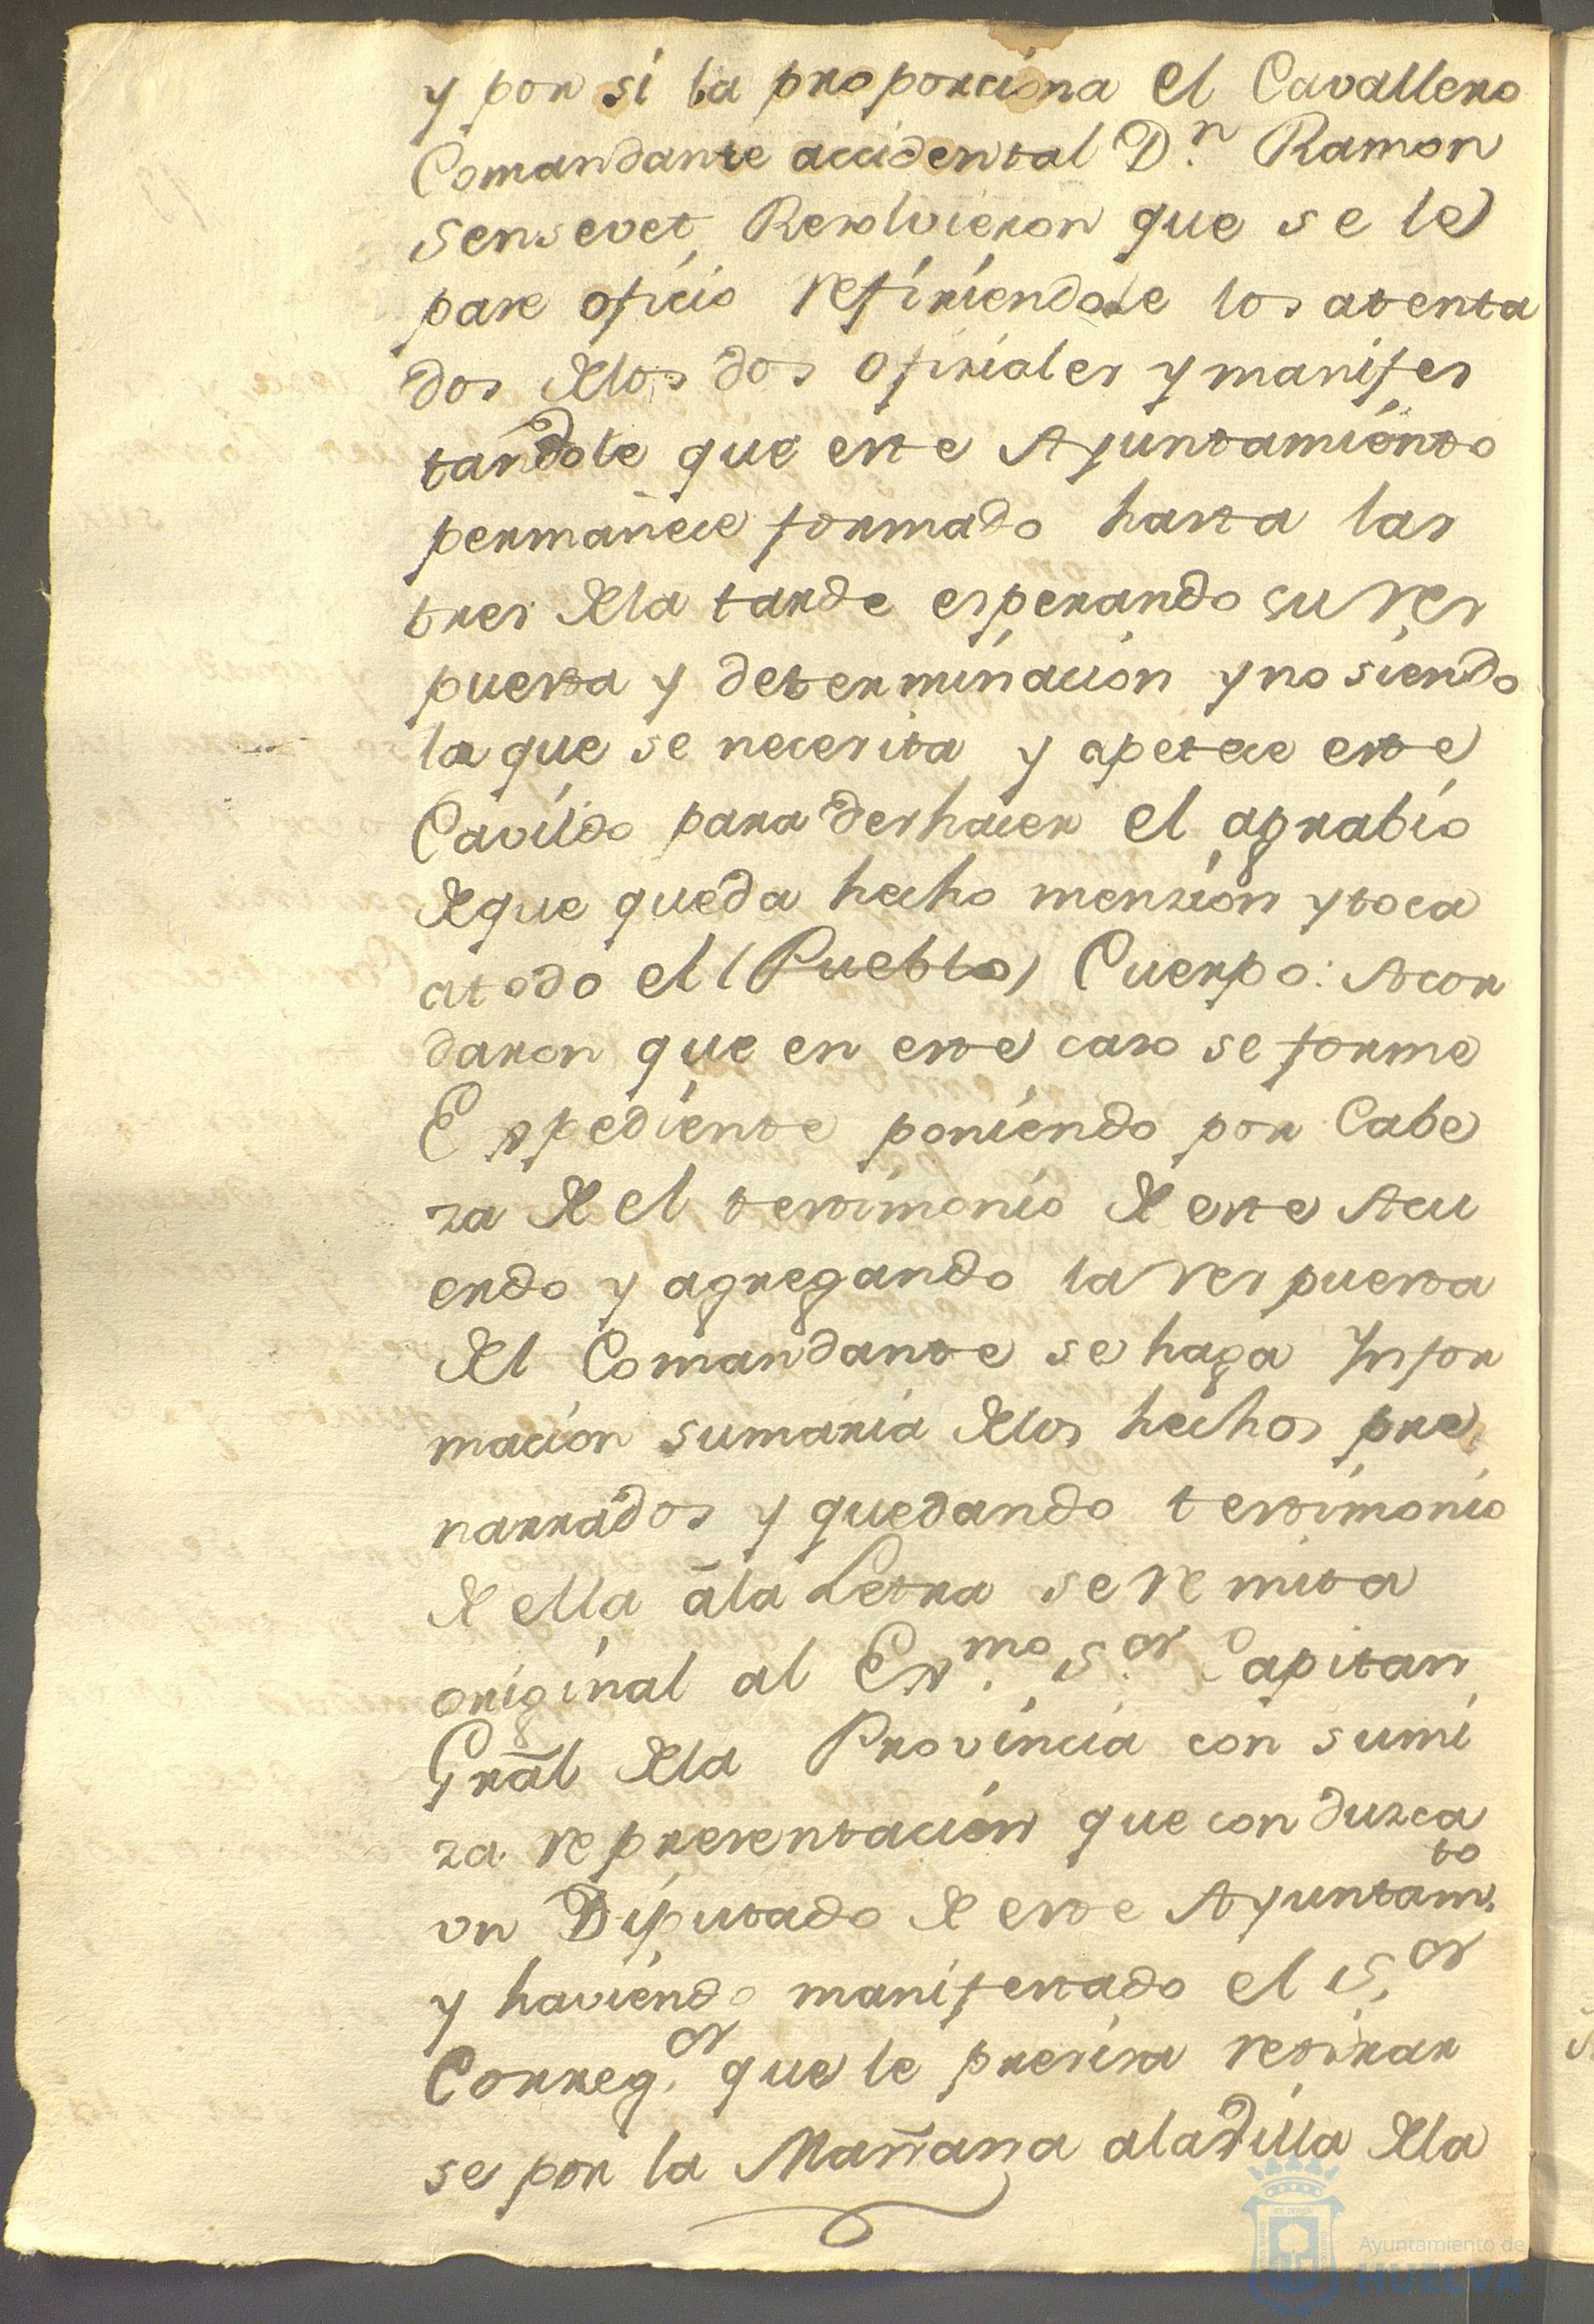 y por si la proporciona el Cavallero
Comandante accidental D.n Ramon
Sensevet, Resolvieron que se le
pase oficio refiriendole los atenta
dos delos dos ofiziales y manifes
tandole que este Ayuntamiento
permanece formado hasta las
tres dela tarde esperando su res
puesta y determinacion y no siendo
la que se necesita y apetece este
Cavildo para deshacer el agrabio
deque queda hecho menzion y toca
atodo el (Pueblo) Cuerpo: Acor
daron que en este caso se forme
Expediente poniendo por Cabe
za de el testimonio de este Acu
erdo y agregando la respuesta
del Comandante se haga Ynfor
macion sumaria delos hechos pre
narrados y quedando testimonio
de ella âla Letra se remita
original al Ex.mo S.or Capitan
Grāl dela Provincia con sumi
za representacion que conduzca
vn Diputado de este Ayuntam.to
y haviendo manifestado el S.or
Correg.or que le presisa retirar
se por la Mañana ala Villa dela
Ayuntamiento de
HUELVA